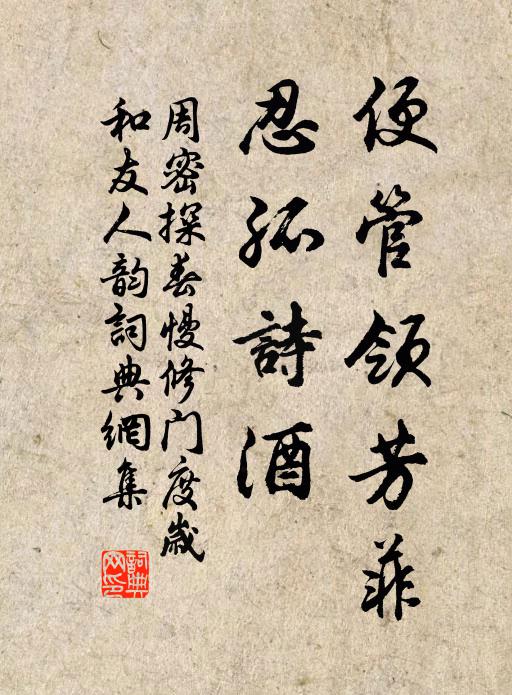 便管領芳菲
忍孤詩酒
周密探春慢修门度歲
和友人韵詞典網集
詞典
网印